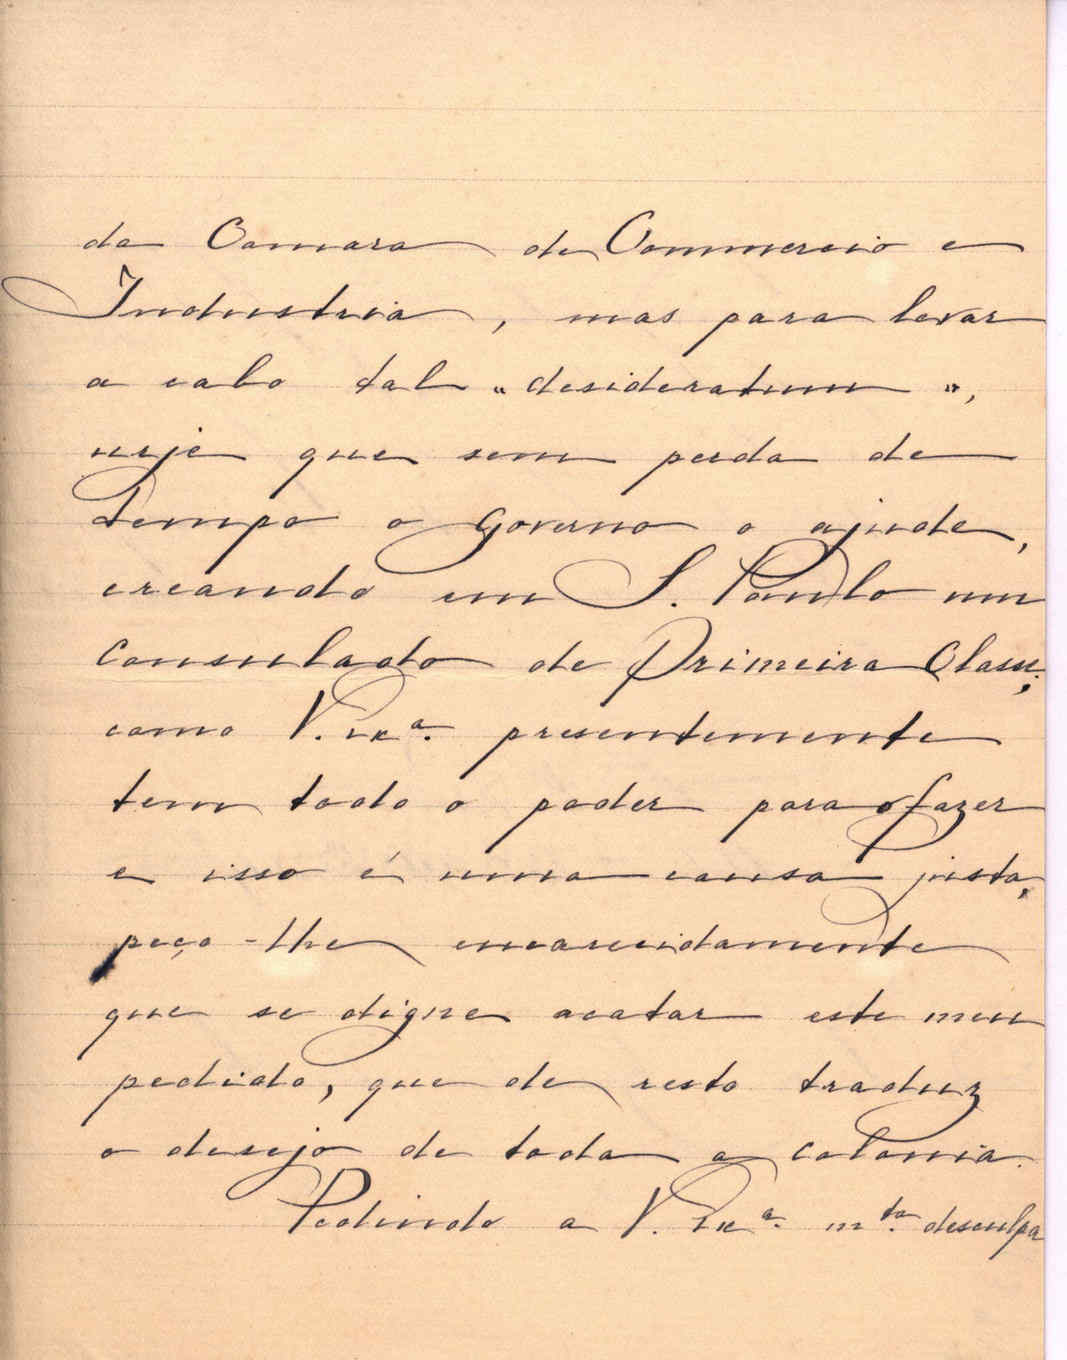 da Camara de Commercio e
Industria, mas para levar
a cabo tal "desideratum",
urje que sem perda de
tempo o governo o ajude,
creando em S. Paulo um
Consulado de Primeira Classe;
como V. Exª. presentemente
tem todo o poder para o fazer
e isso é uma causa justa,
peço-lhe encarecidamente
que se digne acatar este meu
pedido, que de resto traduz
o desejo de toda a colonia.
Pedindo a V. Exª. mta. desculpa